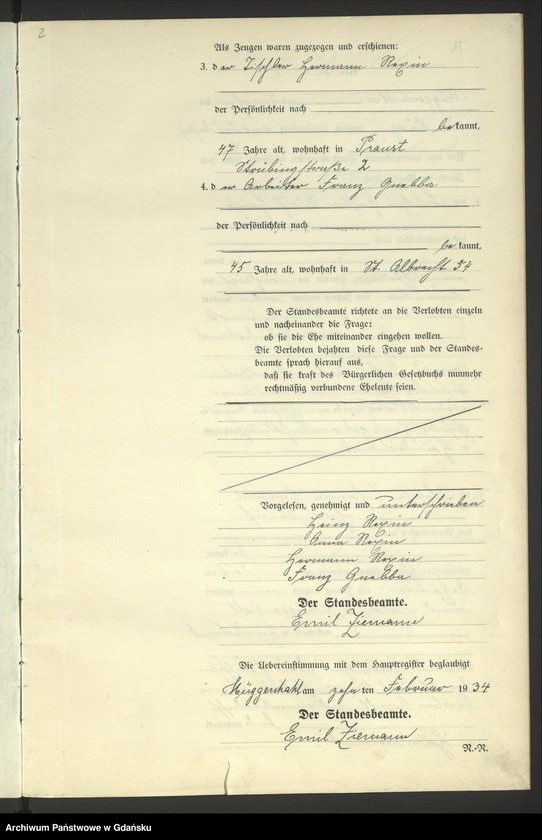 2
Als Zeugen waren zugezogen und erschienen:
3. der Tischler Hermann Rexin
der Persönlichkeit nach
bekannt,
47 Jahre alt, wohnhaft in Praust
Stübingstraße 2
4. der Arbeiter Franz Gnabba
der Persönlichkeit nach
bekannt,
45 Jahre alt, wohnhaft in St. Albrecht 54
Der Standesbeamte richtete an die Verlobten einzeln
und nacheinander die Frage:
ob sie die Ehe miteinander eingehen wollen.
Die Verlobten bejahten diese Frage und der Standes-
beamte sprach hierauf aus,
daß sie kraft des Bürgerlichen Gesetzbuchs nunmehr
rechtmäßig verbundene Eheleute seien.
Vorgelesen, genehmigt und unterschrieben
Heinz Rexin
Anna Rexin
Hermann Rexin
Franz Gnabba
Der Standesbeamte.
Emil Ziemann
Die Uebereinstimmung mit dem Hauptregister beglaubigt
Müggenhahl am zehn ten Februar 1934
Der Standesbeamte.
Emil Ziemann
N.-R.
Archiwum Państwowe w Gdańsku